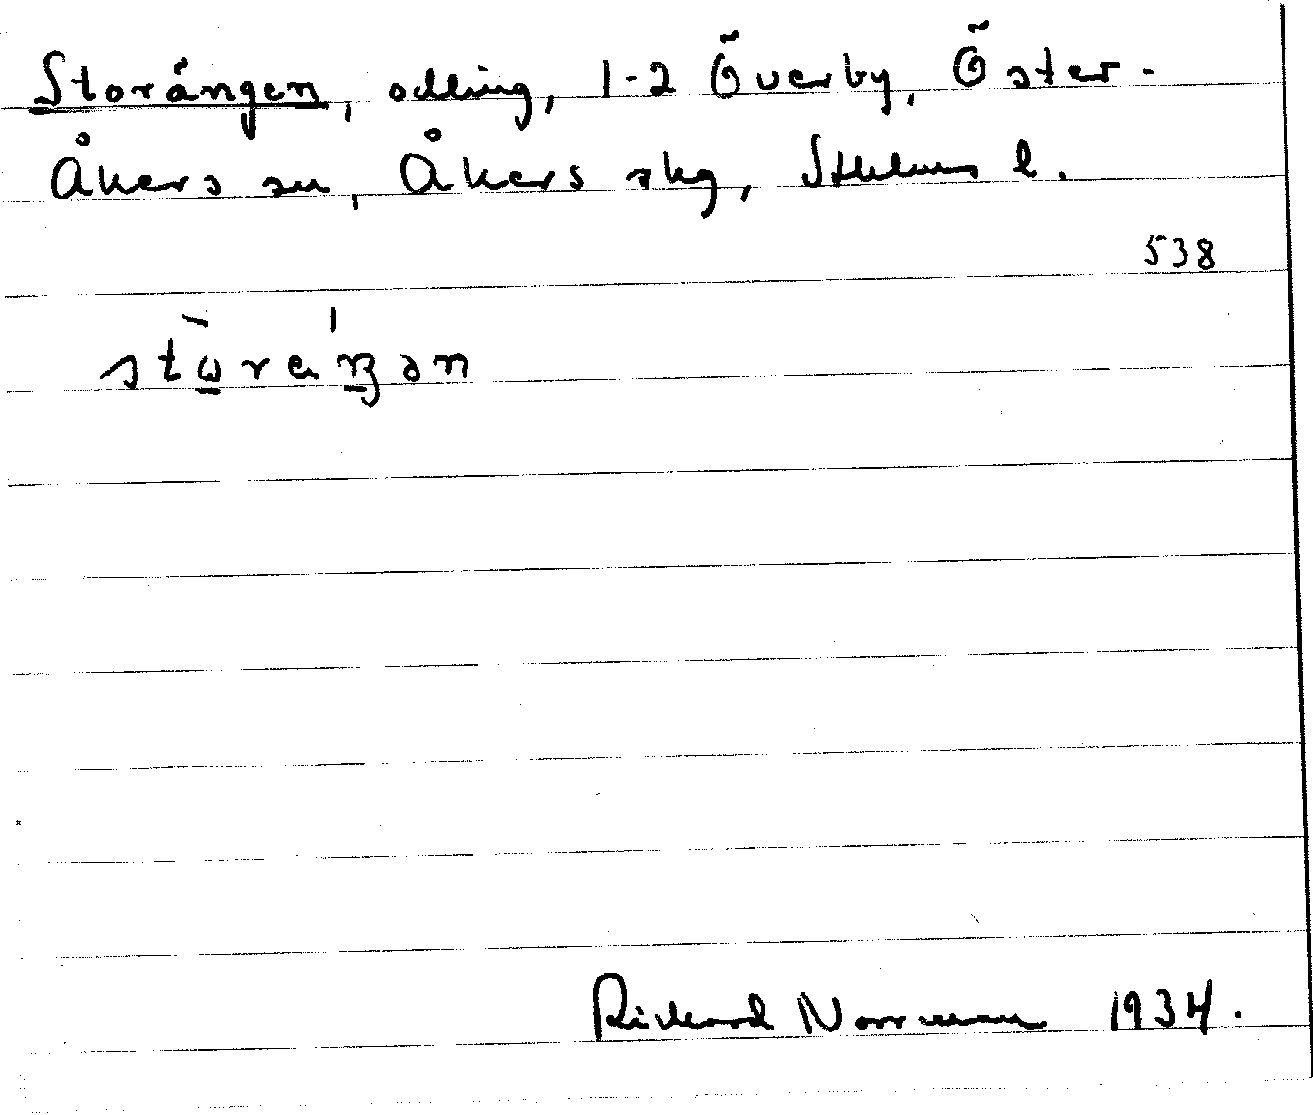 Storängen, odling, 1-2 Överby, Öster-
Åkers sn, Åkers skg, Sthlms l.
538
stωräŋən
Rickard Norrman 1934.